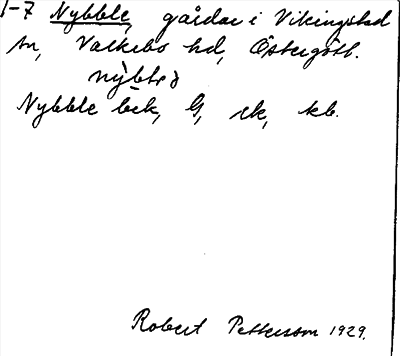 1-7 Nybble, gårdar i Vikingstad
sn, Valkebo hd, Östergötl.
Nybble bek, G, rk, kb.
Robert Pettersson 1929.